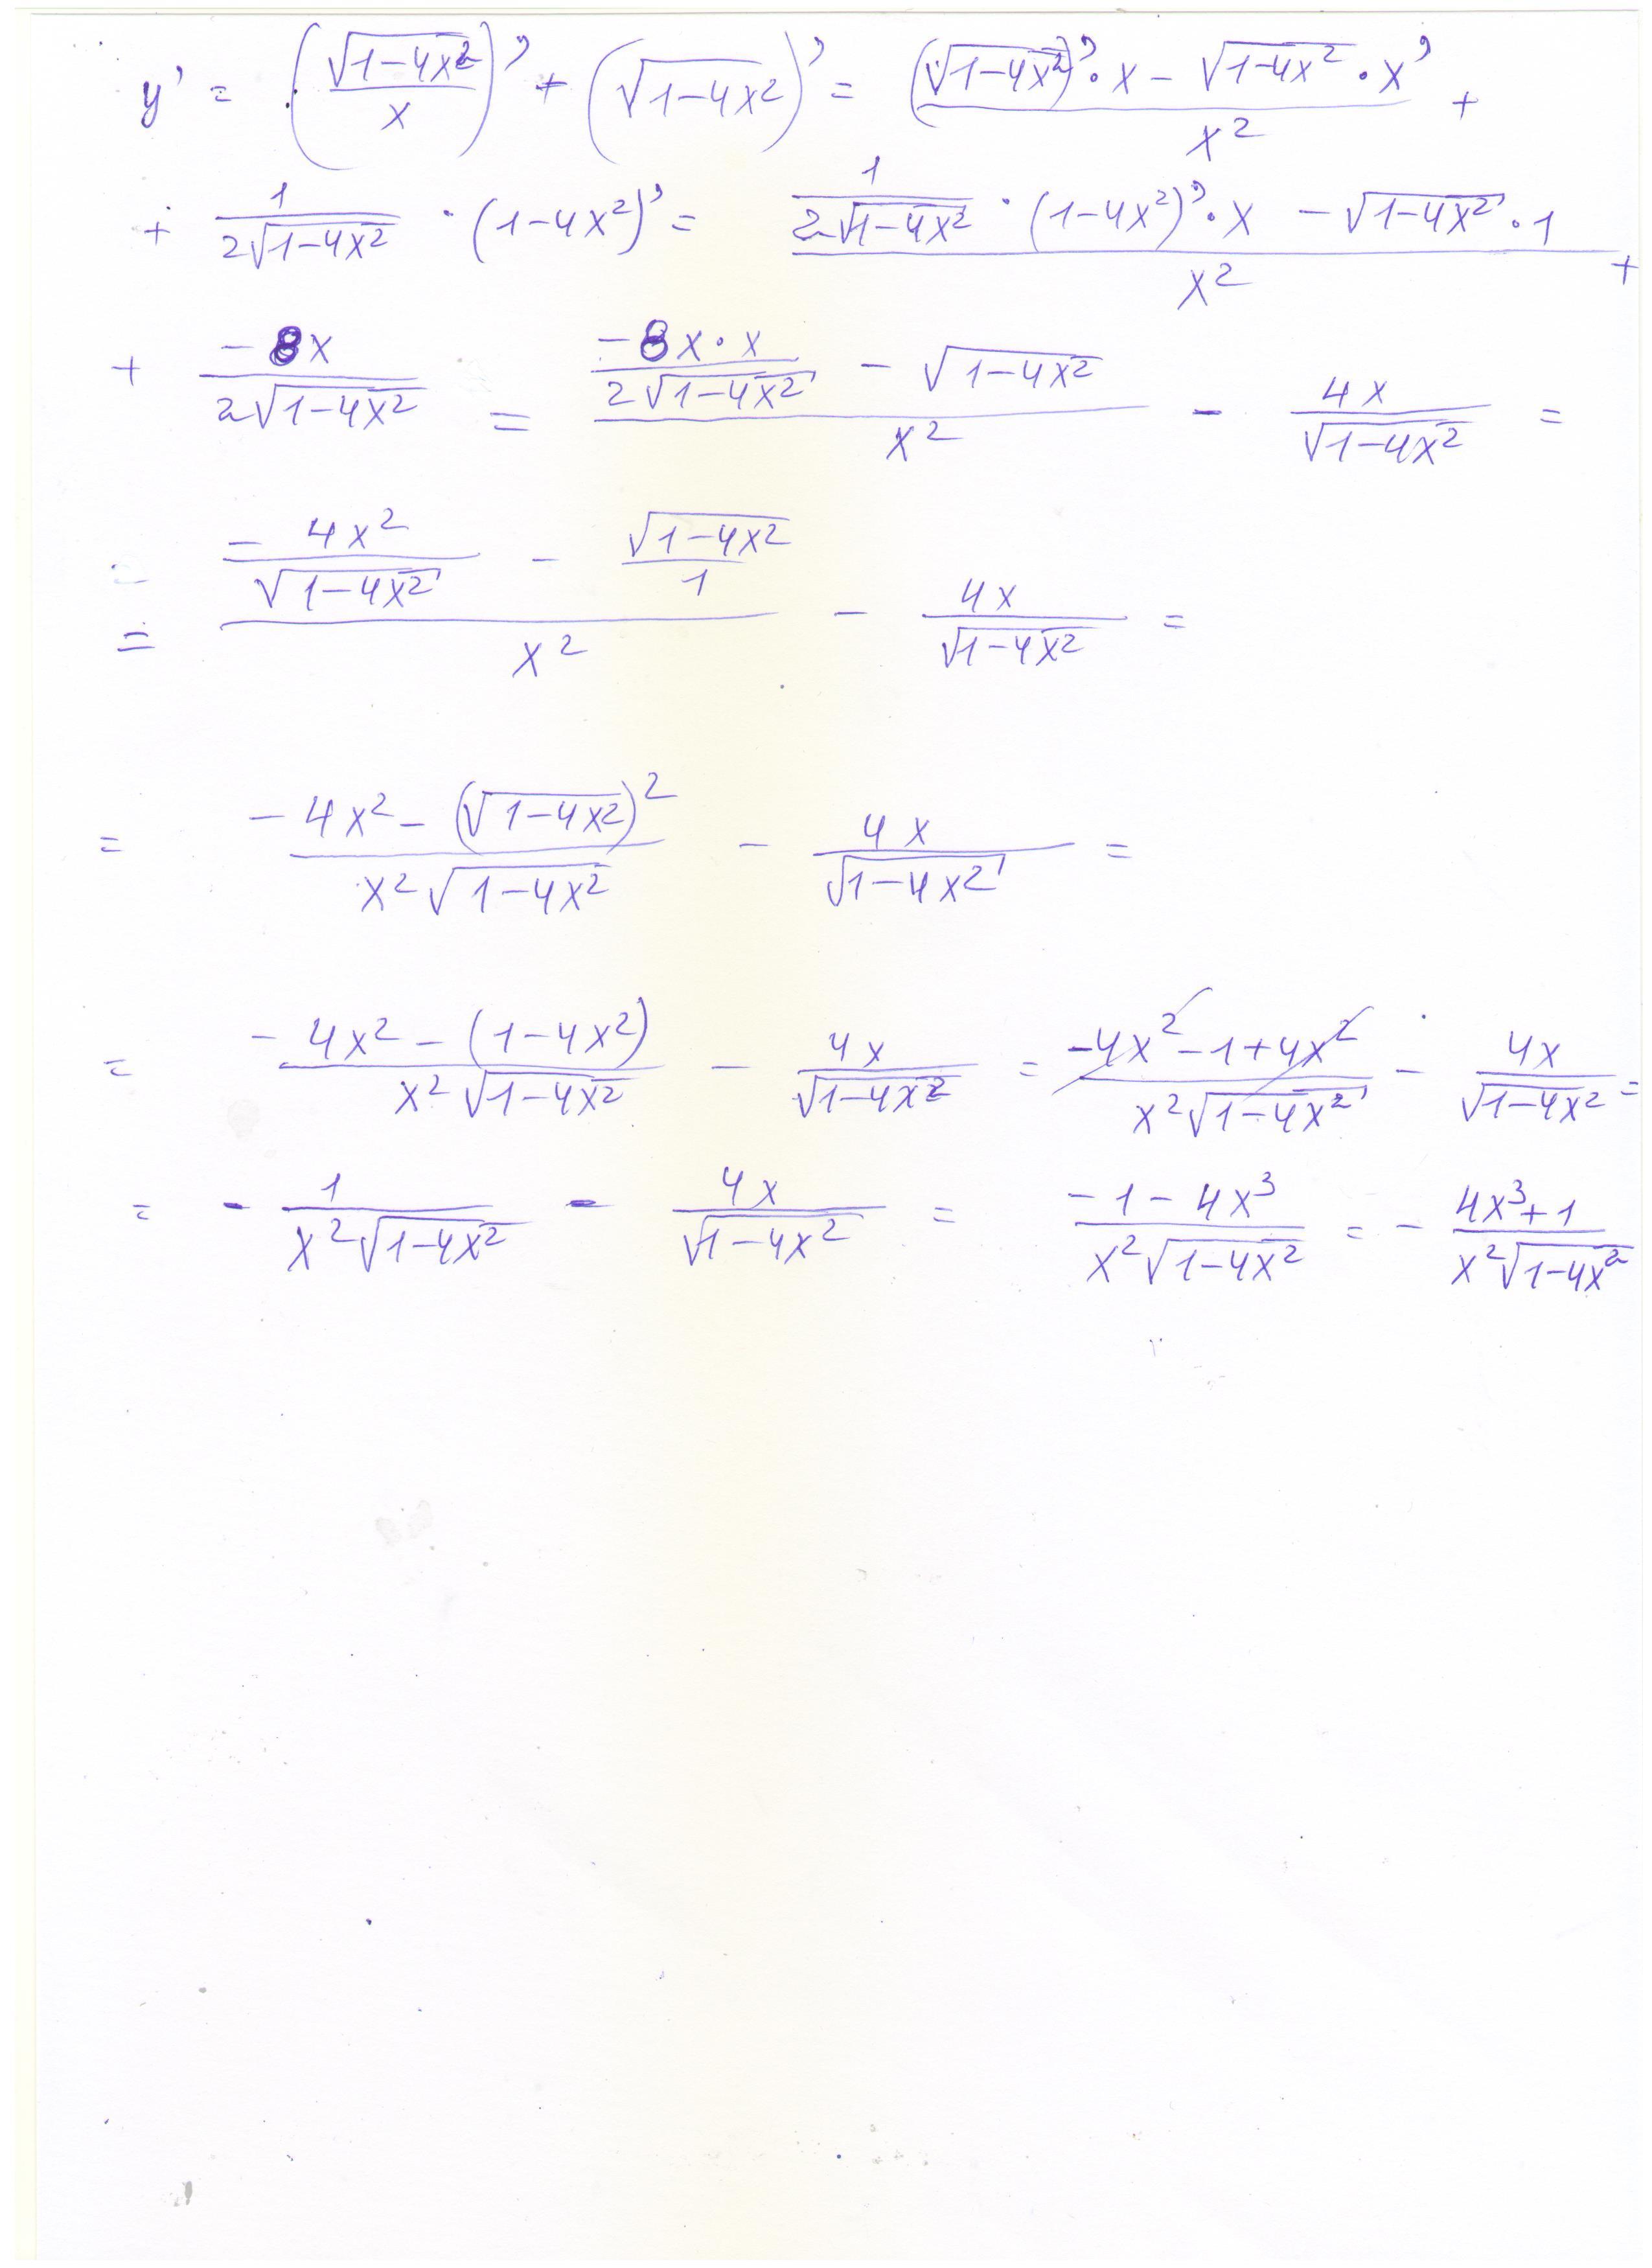 y' = (√(1-4x²)/x)' + (√(1-4x²))' = ((√(1-4x²))'·x - √(1-4x²)·x')/x² +
+ 1/(2√(1-4x²)) · (1-4x²)' = (1/(2√(1-4x²)) · (1-4x²)'·x - √(1-4x²)·1)/x² +
+ (-8x)/(2√(1-4x²)) = ((-8x·x)/(2√(1-4x²)) - √(1-4x²))/x² - 4x/√(1-4x²) =
= (-4x²/√(1-4x²) - √(1-4x²)/1)/x² - 4x/√(1-4x²) =
= (-4x² - (√(1-4x²))²)/(x²√(1-4x²)) - 4x/√(1-4x²) =
= (-4x² - (1-4x²))/(x²√(1-4x²)) - 4x/√(1-4x²) = (-4x² - 1 + 4x²)/(x²√(1-4x²)) - 4x/√(1-4x²) =
= - 1/(x²√(1-4x²)) - 4x/√(1-4x²) = (-1 - 4x³)/(x²√(1-4x²)) = - (4x³+1)/(x²√(1-4x²))